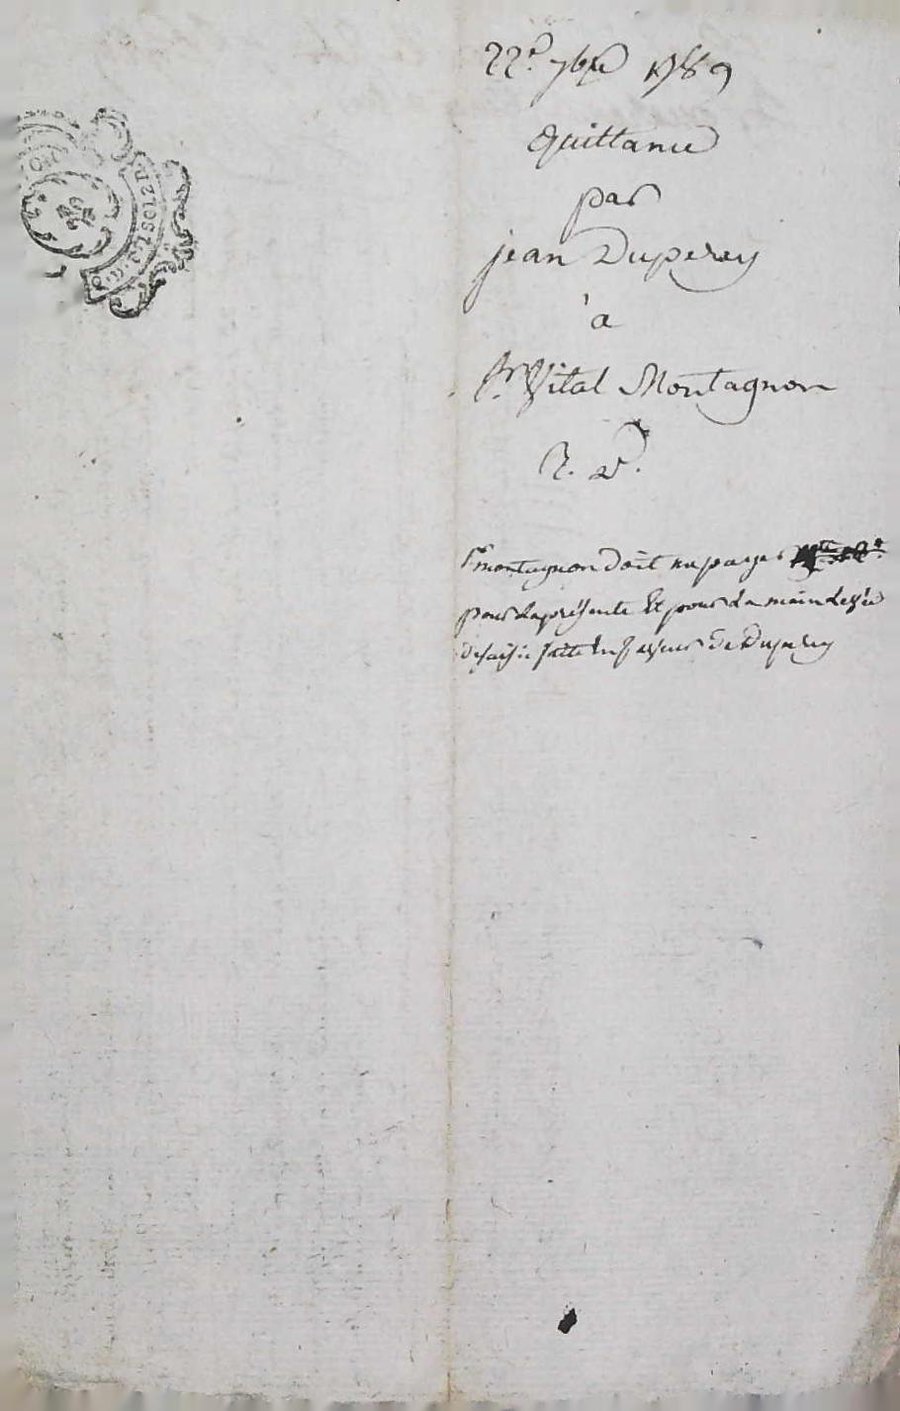 22e. 7bre 1789
Quittance
par
jean Duperey
à
Sr. Vital Montagnon
Sr montagnon doit en payer
pour la présente Et pour La main Levée
de saisie faite En faveur de Duperey